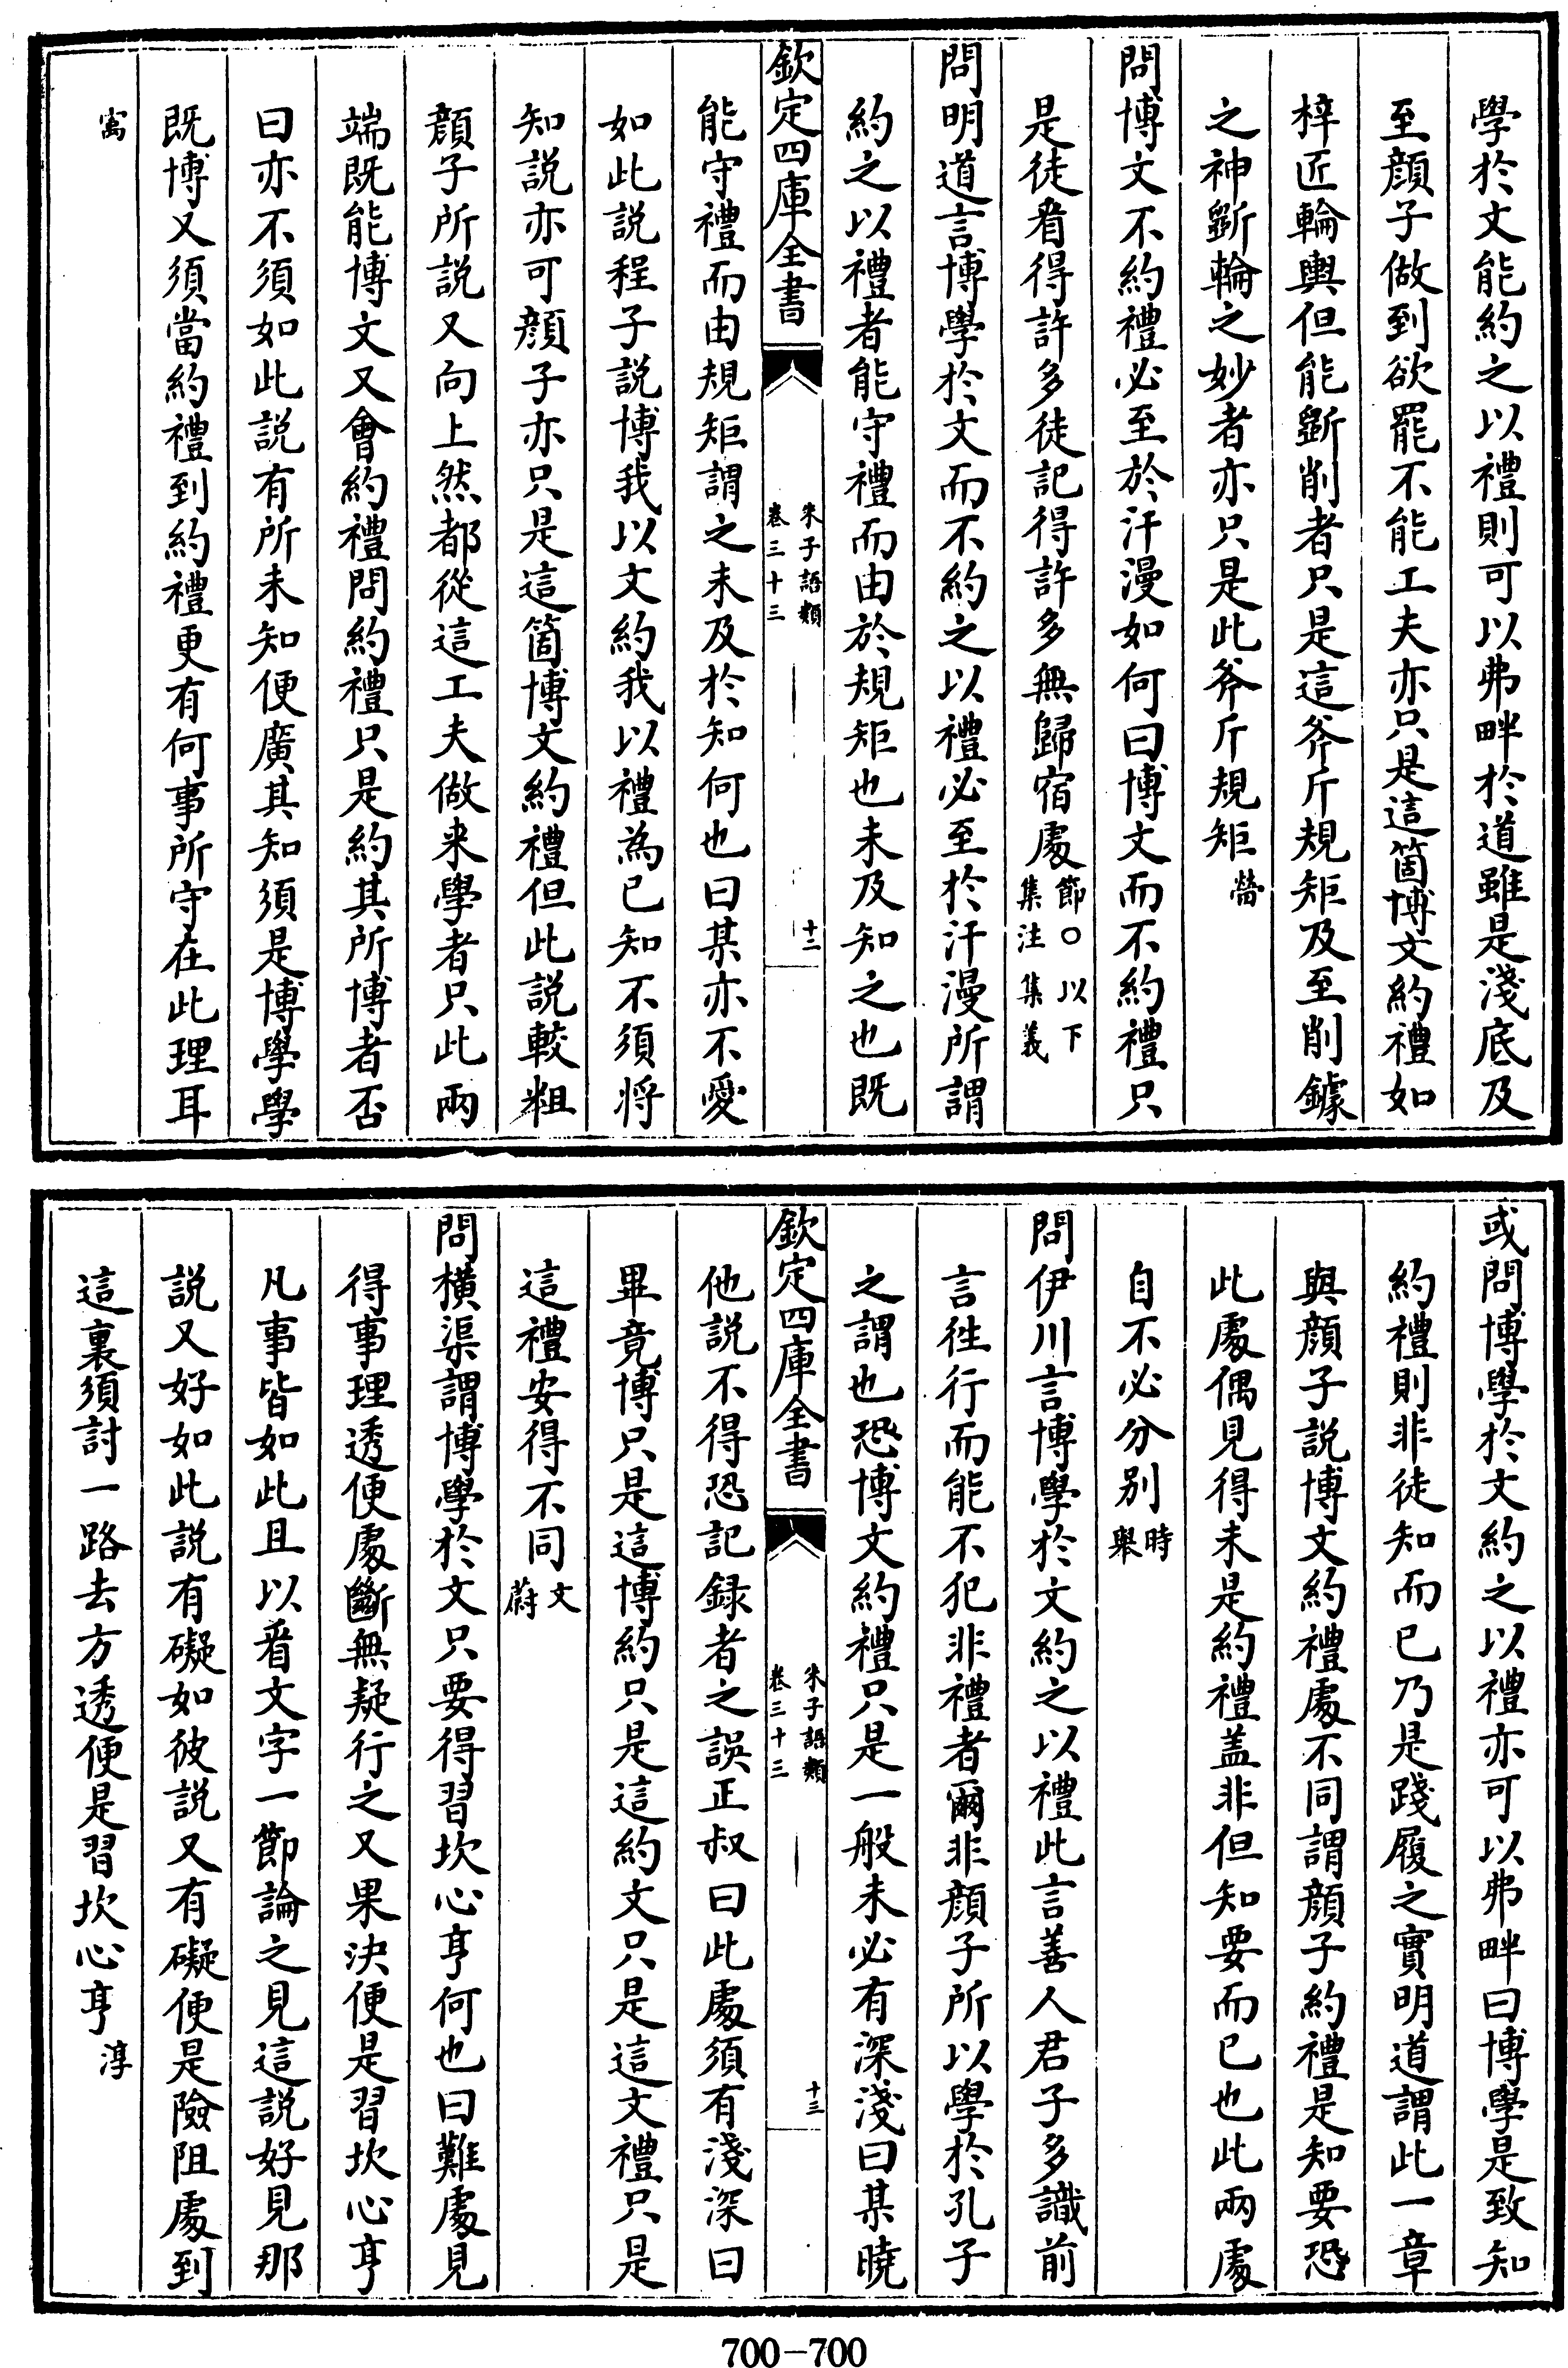 學於文能約之以禮則可以弗畔於道雖是淺底及
至顔子做到欲罷不能工夫亦只是這箇博文約禮如
梓匠輪輿但能斲削者只是這斧斤規矩及至削鐻
之神斲輪之妙者亦只是此斧斤規矩㽦
問博文不約禮必至於汗漫如何曰博文而不約禮只
是徒看得許多徒記得許多無歸宿處節○以下集注集義
問明道言博學於文而不約之以禮必至於汗漫所謂
約之以禮者能守禮而由於規矩也未及知之也既
欽定四庫全書
朱子語類
卷三十三
十二
能守禮而由規矩謂之未及於知何也曰某亦不愛
如此説程子説博我以文約我以禮為已知不須將
知説亦可顔子亦只是這箇博文約禮但此説較粗
顔子所説又向上然都從這工夫做来學者只此兩
端既能博文又會約禮問約禮只是約其所博者否
曰亦不須如此説有所未知便廣其知須是博學學
既博又須當約禮到約禮更有何事所守在此理耳
㝢
或問博學於文約之以禮亦可以弗畔曰博學是致知
約禮則非徒知而已乃是踐履之實明道謂此一章
與顔子説博文約禮處不同謂顔子約禮是知要恐
此處偶見得未是約禮盖非但知要而已也此兩處
自不必分别時舉
問伊川言博學於文約之以禮此言善人君子多識前
言徃行而能不犯非禮者爾非顔子所以學於孔子
之謂也恐博文約禮只是一般未必有深淺曰某曉
欽定四庫全書
朱子語類
卷三十三
十三
他説不得恐記録者之誤正叔曰此處須有淺深曰
畢竟博只是這博約只是這約文只是這文禮只是
這禮安得不同文蔚
問橫渠謂博學於文只要得習坎心亨何也曰難處見
得事理透便處斷無疑行之又果決便是習坎心亨
凡事皆如此且以看文字一節論之見這説好見那
説又好如此説有礙如彼説又有礙便是險阻處到
這裏須討一路去方透便是習坎心亨淳
700-700